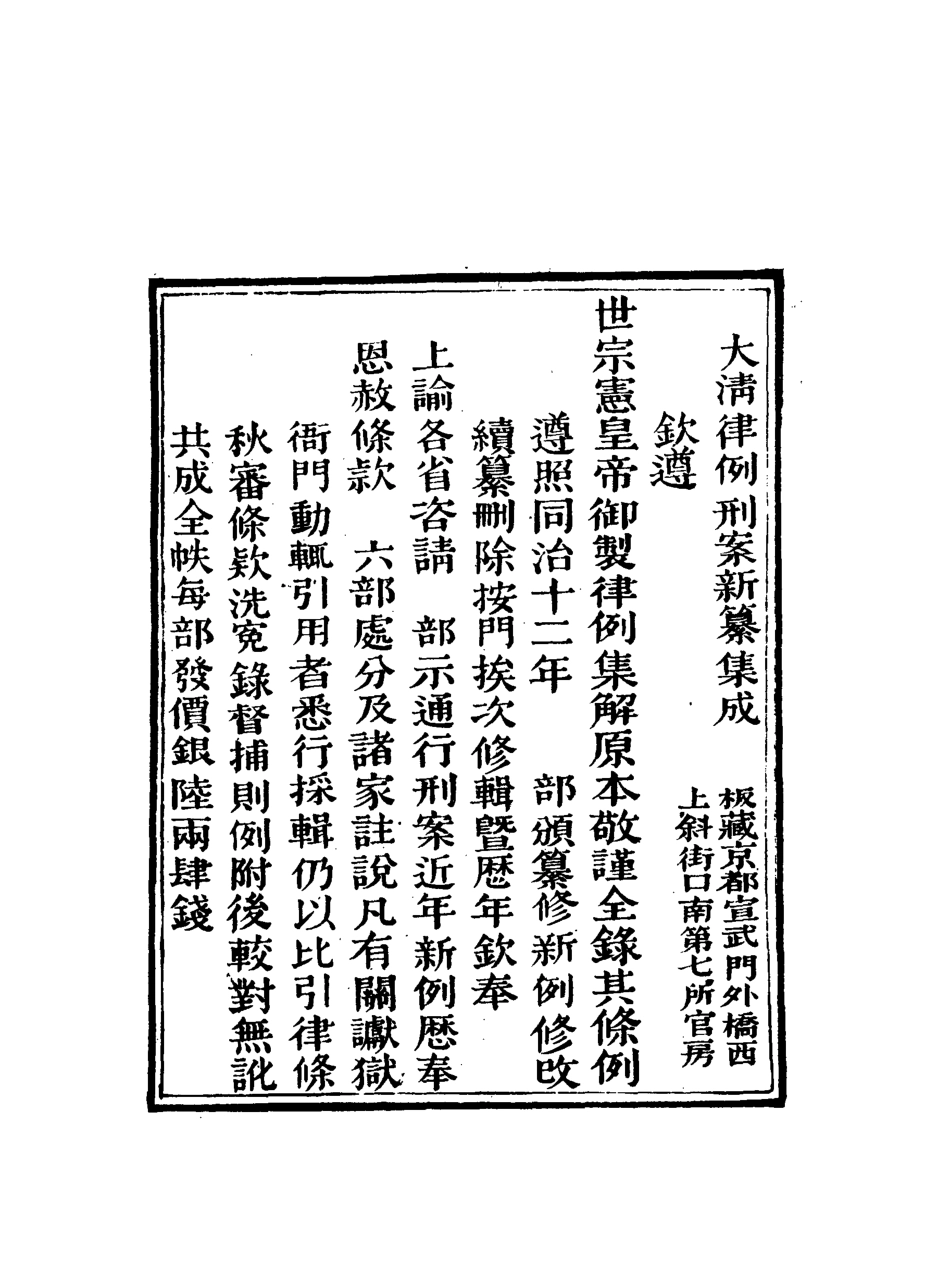 大淸律例刑案新纂集成
板藏京都宣武門外橋西
上斜街口南第七所官房
欽遵
世宗憲皇帝御製律例集解原本敬謹全錄其條例
遵照同治十二年　部頒纂修新例修改
續纂刪除按門挨次修輯曁歷年欽奉
上諭各省咨請　部示通行刑案近年新例歷奉
恩赦條款　六部處分及諸家註說凡有關讞獄
衙門動輒引用者悉行採輯仍以比引律條
秋審條款洗寃錄督捕則例附後較對無訛
共成全帙每部發價銀陸兩肆錢